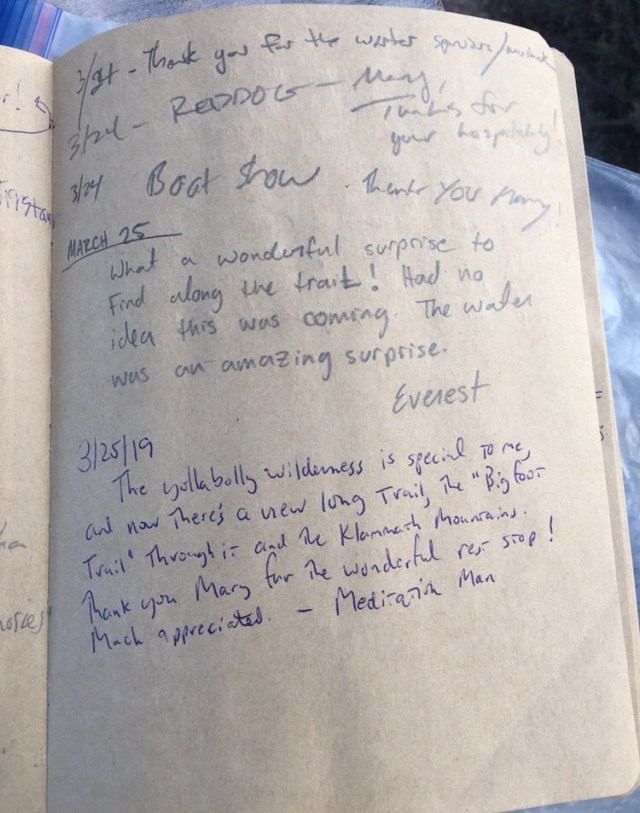 3/24 - Thank you for the water
3/24 - REDDOG - Mary,
Thanks for
your hospitality!
3/24 Boat Show. Thank You Mary!
MARCH 25
What a wonderful surprise to
find along the trail! Had no
idea this was coming. The water
was an amazing surprise.
Everest
3/25/19
The yollabolly wilderness is special to me,
and now There's a new long Trail, The "Bigfoot
Trail" Through it and The Klammath Mountains.
Thank you Mary for The wonderful rest stop!
Much appreciated. - Meditation Man